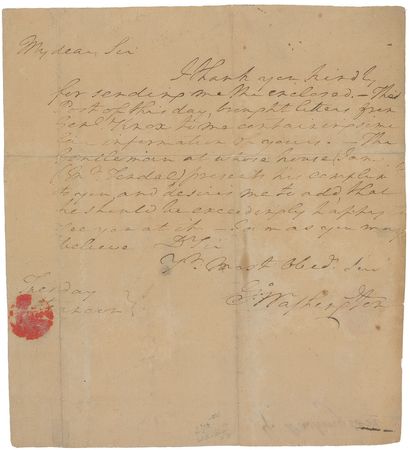 My dear Sir
I thank you kindly
for sending me the enclosed. – The
Post of this day, brought letters from
Genl Knox to me containing simi
lar information of yours. – The
Gentleman at whose house I am
presents his complim
to you and desires me to add, that
he should be exceedingly happy to
see you at it – so am as you may
believe Dr Sir
Yr Most Obedt Ser
Go Washington
Tuesday